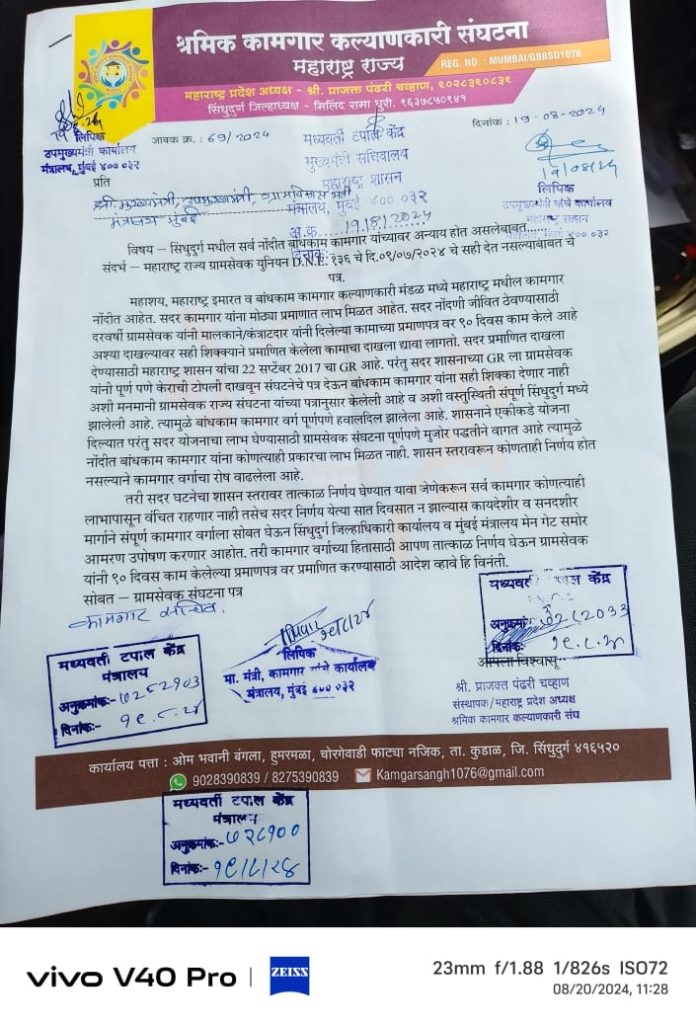 श्रमिक कामगार कल्याणकारी संघटना
महाराष्ट्र राज्य
REG. NO. : MUMBAI/GBBSD1076
महाराष्ट्र प्रदेश अध्यक्ष - श्री. प्राजक्त पंढरी चव्हाण, ९०२८३९०८३९
सिंधुदुर्ग जिल्हाध्यक्ष - मिलिंद रामा धुरी, ९६३७८५०९४१
लिपिक
उपमुख्यमंत्री कार्यालय
मंत्रालय, मुंबई ४०० ०३२
जावक क्र. : 69/2024
मध्यवर्ती टपाल केंद्र
मुख्यमंत्री सचिवालय
महाराष्ट्र शासन
मंत्रालय, मुंबई ४०० ०३२
अ.क्र. 19/8/2024
दिनांक:
दिनांक : 19-08-2024
19/08/24
लिपिक
उपमुख्यमंत्री यांचे कार्यालय
महाराष्ट्र शासन
प्रति
श्री. मुख्यमंत्री, उपमुख्यमंत्री, ग्रामविकास मंत्री
मंत्रालय मुंबई
विषय – सिंधुदुर्ग मधील सर्व नोंदीत बांधकाम कामगार यांच्यावर अन्याय होत असलेबाबत.....
संदर्भ – महाराष्ट्र राज्य ग्रामसेवक युनियन D.N.E. १३६ चे दि.०९/०७/२०२४ चे सही देत नसल्याबाबत चे
पत्र.
महाशय, महाराष्ट्र इमारत व बांधकाम कामगार कल्याणकारी मंडळ मध्ये महाराष्ट्र मधील कामगार
नोंदीत आहेत. सदर कामगार यांना मोठ्या प्रमाणात लाभ मिळत आहेत. सदर नोंदणी जीवित ठेवण्यासाठी
दरवर्षी ग्रामसेवक यांनी मालकाने/कंत्राटदार यांनी दिलेल्या कामाच्या प्रमाणपत्र वर ९० दिवस काम केले आहे
अश्या दाखल्यावर सही शिक्क्याने प्रमाणित केलेला कामाचा दाखला द्यावा लागतो. सदर प्रमाणित दाखला
देण्यासाठी महाराष्ट्र शासन यांचा 22 सप्टेंबर 2017 चा GR आहे. परंतु सदर शासनाच्या GR ला ग्रामसेवक
यांनी पूर्ण पणे केराची टोपली दाखवून संघटनेचे पत्र देऊन बांधकाम कामगार यांना सही शिक्का देणार नाही
अशी मनमानी ग्रामसेवक राज्य संघटना यांच्या पत्रानुसार केलेली आहे व अशी वस्तुस्थिती संपूर्ण सिंधुदुर्ग मध्ये
झालेली आहे. त्यामुळे बांधकाम कामगार वर्ग पूर्णपणे हवालदिल झालेला आहे. शासनाने एकीकडे योजना
दिल्यात परंतु सदर योजनाचा लाभ घेण्यासाठी ग्रामसेवक संघटना पूर्णपणे मुजोर पद्धतीने वागत आहे त्यामुळे
नोंदीत बांधकाम कामगार यांना कोणत्याही प्रकारचा लाभ मिळत नाही. शासन स्तरावरून कोणताही निर्णय होत
नसल्याने कामगार वर्गाचा रोष वाढलेला आहे.
तरी सदर घटनेचा शासन स्तरावर तात्काळ निर्णय घेण्यात यावा जेणेकरून सर्व कामगार कोणत्याही
लाभापासून वंचित राहणार नाही तसेच सदर निर्णय येत्या सात दिवसात न झाल्यास कायदेशीर व सनदशीर
मार्गाने संपूर्ण कामगार वर्गाला सोबत घेऊन सिंधुदुर्ग जिल्हाधिकारी कार्यालय व मुंबई मंत्रालय मेन गेट समोर
आमरण उपोषण करणार आहोत. तरी कामगार वर्गाच्या हितासाठी आपण तात्काळ निर्णय घेऊन ग्रामसेवक
यांनी ९० दिवस काम केलेल्या प्रमाणपत्र वर प्रमाणित करण्यासाठी आदेश व्हावे हि विनंती.
सोबत – ग्रामसेवक संघटना पत्र
कामगार सचिव.
मध्यवर्ती टपाल केंद्र
मंत्रालय
अनुक्रमांक:- ७२८२१०३
दिनांक:- १९.८.२४
१९/८/२४
लिपिक
मा. मंत्री, कामगार यांचे कार्यालय
मंत्रालय, मुंबई ४०० ०३२
मध्यवर्ती टपाल केंद्र
अनुक्रमांक:
दिनांक:- १९.८.२४
आपला विश्वासू
श्री. प्राजक्त पंढरी चव्हाण
संस्थापक/महाराष्ट्र प्रदेश अध्यक्ष
श्रमिक कामगार कल्याणकारी संघ
कार्यालय पत्ता : ओम भवानी बंगला, हुमरमळा, चोरगेवाडी फाट्या नजिक, ता. कुडाळ, जि. सिंधुदुर्ग ४१६५२०
9028390839 / 8275390839 Kamgarsangh1076@gmail.com
मध्यवर्ती टपाल केंद्र
मंत्रालय
अनुक्रमांक:- ७२८१००
दिनांक:- १९/८/२४
vivo V40 Pro | ZEISS
23mm f/1.88 1/826s ISO72
08/20/2024, 11:28